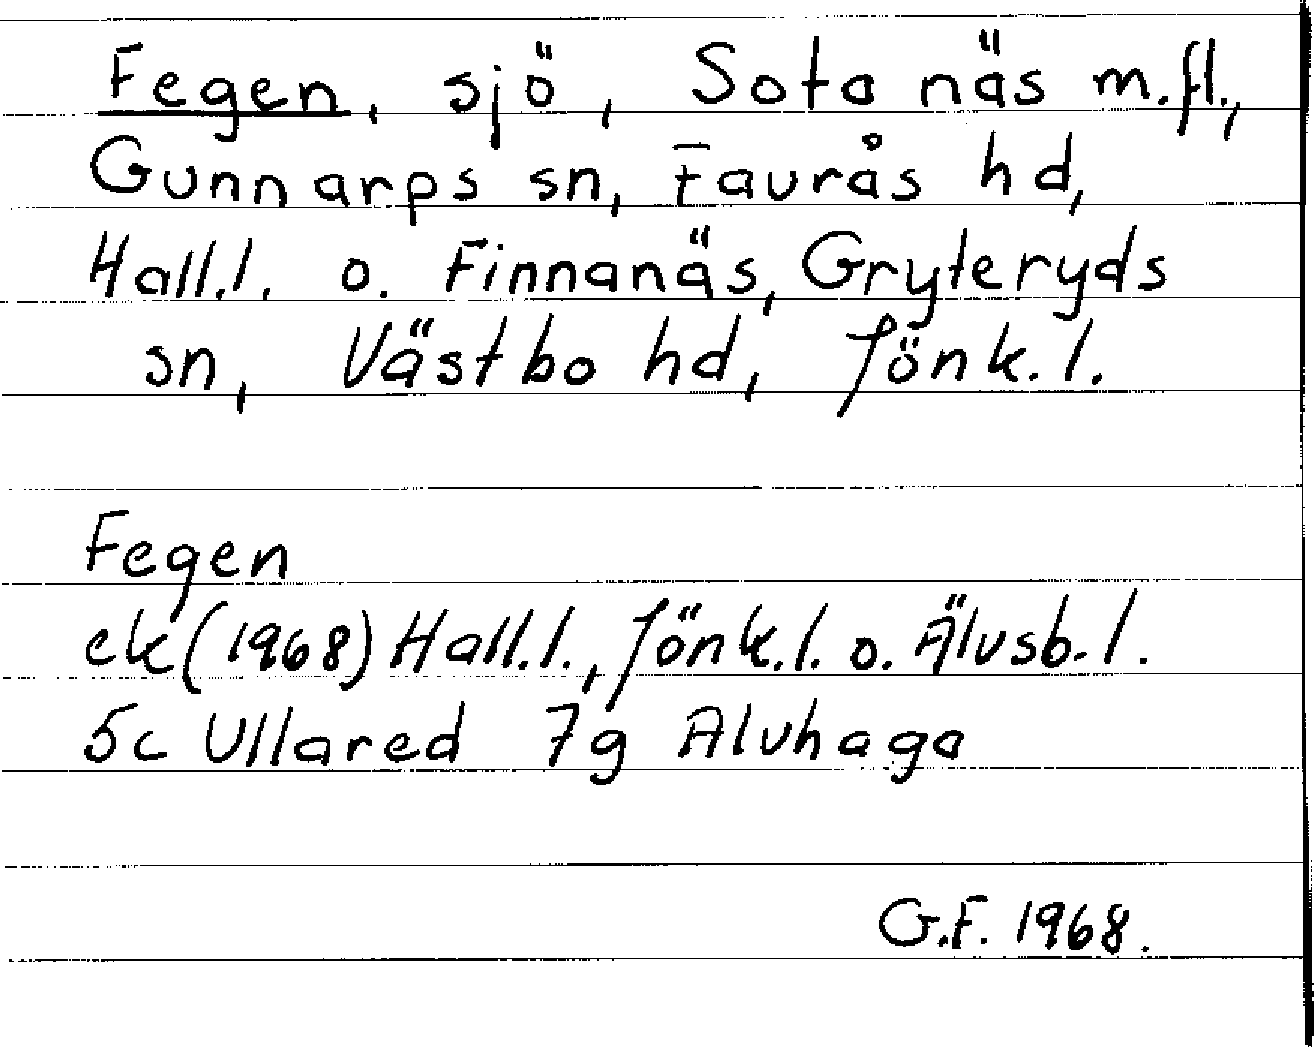 Fegen, sjö, Sota näs m.fl.,
Gunnarps sn, Faurås hd,
Hall.l. o. Finnanäs, Gryteryds
sn, Västbo hd, Jönk.l.
Fegen
ek (1968) Hall.l., Jönk.l. o. Älvsb.l.
5c Ullared 7g Alvhaga
G.F. 1968.